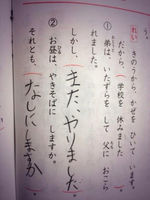 う。
れい きのうから、かぜを ひいて います。
だから、(学校を 休みました
① 弟は、いたずらを して 父に おこら
れました。
しかし、(また、やりました。)
② お昼は、やきそばに しますか。
それとも、(なしにしますか